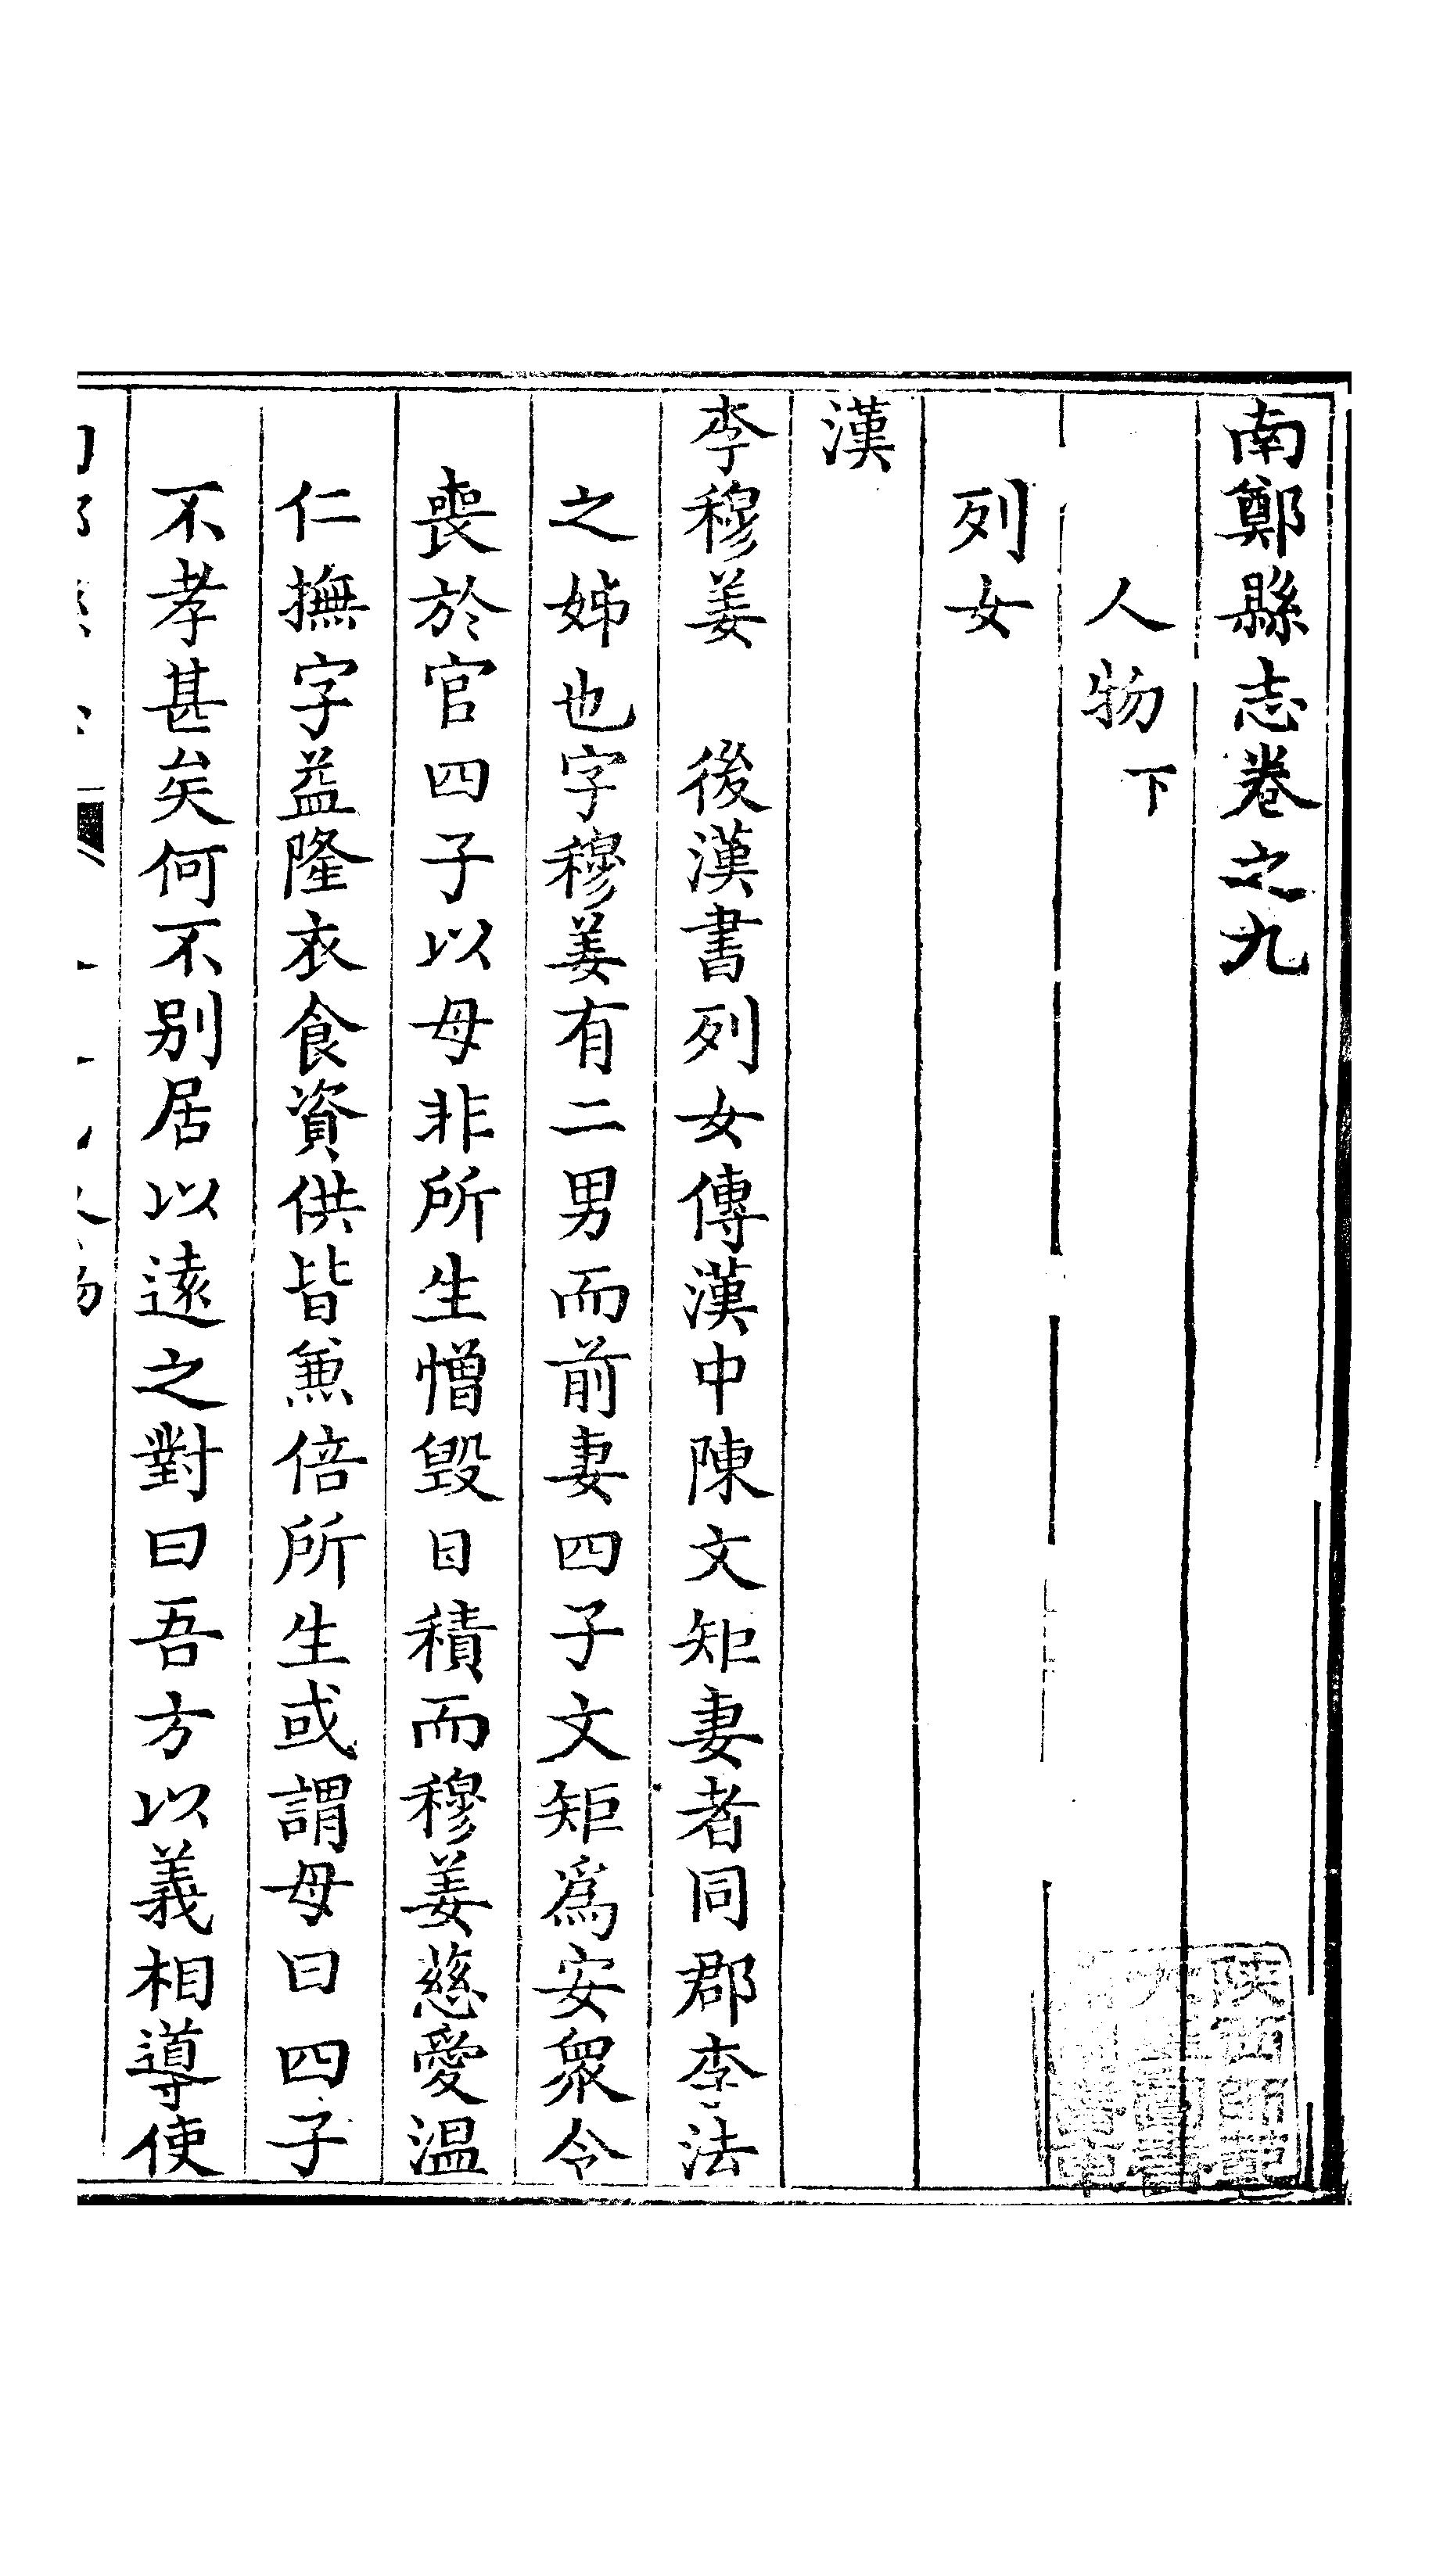 南鄭縣志卷之九
人物下
列女
漢
李穆姜　後漢書列女傳漢中陳文矩妻者同郡李法
之姊也字穆姜有二男而前妻四子文矩爲安眾令
喪於官四子以母非所生憎毀日積而穆姜慈愛温
仁撫字益隆衣食資供皆兼倍所生或謂母曰四子
不孝甚矣何不别居以遠之對曰吾方以義相導使